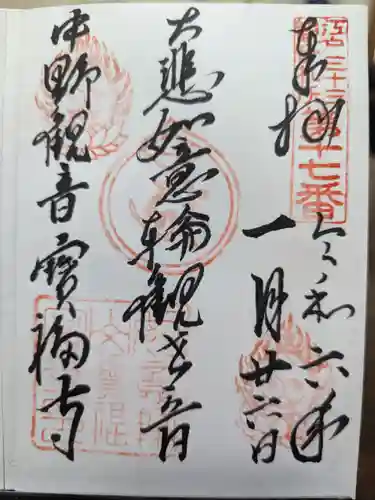 奉拝
江戸三十三
第十七番
令和六年
一月廿六日
大悲如意輪観世音
中野観音寳福寺